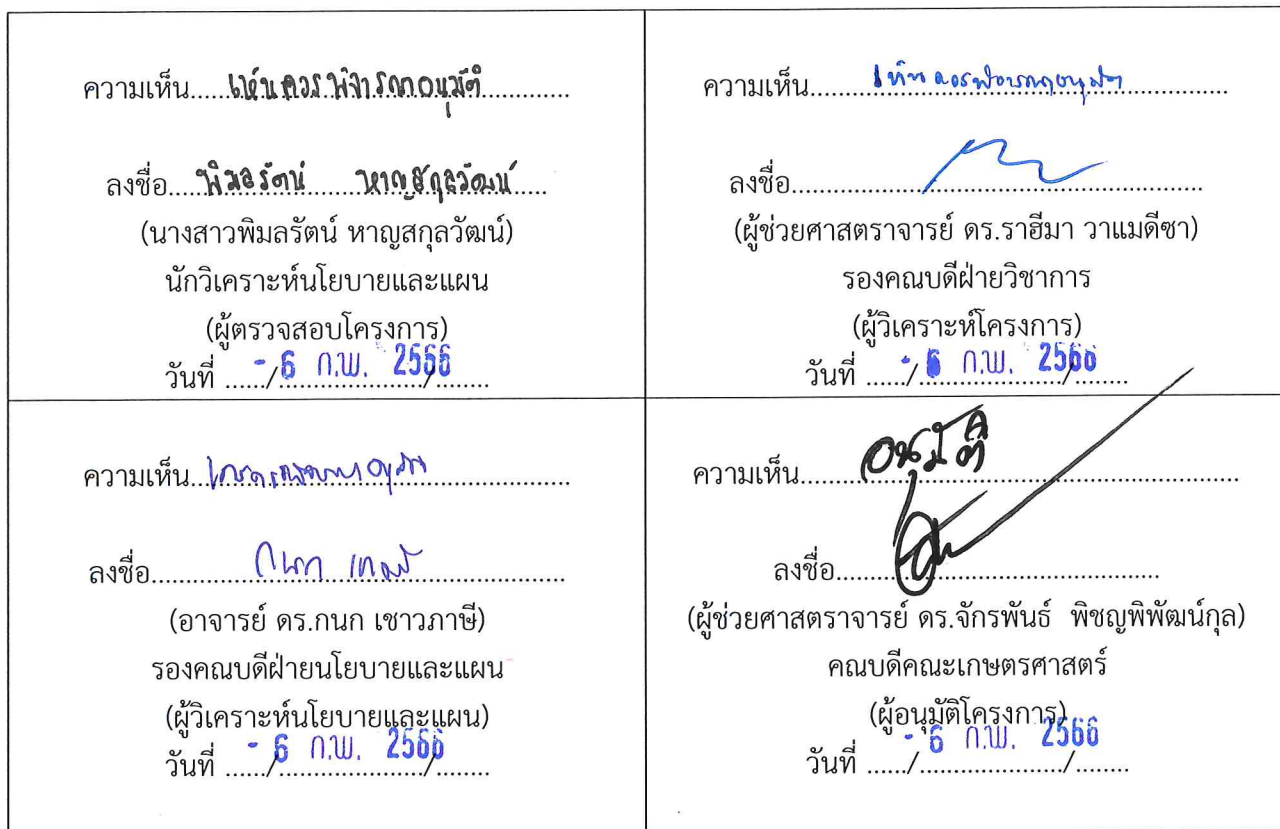 ความเห็น.....เห็นควรพิจารณาอนุมัติ..........
ลงชื่อ....พิมลรัตน์ หาญสกุลวัฒน์....
(นางสาวพิมลรัตน์ หาญสกุลวัฒน์)
นักวิเคราะห์นโยบายและแผน
(ผู้ตรวจสอบโครงการ)
วันที่ ....../- 6 ก.พ. 2566/........
ความเห็น.......เห็นควรพิจารณาอนุมัติ...............
ลงชื่อ......................................................
(ผู้ช่วยศาสตราจารย์ ดร.ราฮีมา วาแมดีซา)
รองคณบดีฝ่ายวิชาการ
(ผู้วิเคราะห์โครงการ)
วันที่ ....../- 6 ก.พ. 2566/........
ความเห็น..............................................
ลงชื่อ...........กนก....................
(อาจารย์ ดร.กนก เชาวภาษี)
รองคณบดีฝ่ายนโยบายและแผน
(ผู้วิเคราะห์นโยบายและแผน)
วันที่ ....../- 6 ก.พ. 2566/........
ความเห็น..........อนุมัติ..............................
ลงชื่อ...........................................
(ผู้ช่วยศาสตราจารย์ ดร.จักรพันธ์ พิชญพิพัฒน์กุล)
คณบดีคณะเกษตรศาสตร์
(ผู้อนุมัติโครงการ)
วันที่ ....../- 6 ก.พ. 2566/........